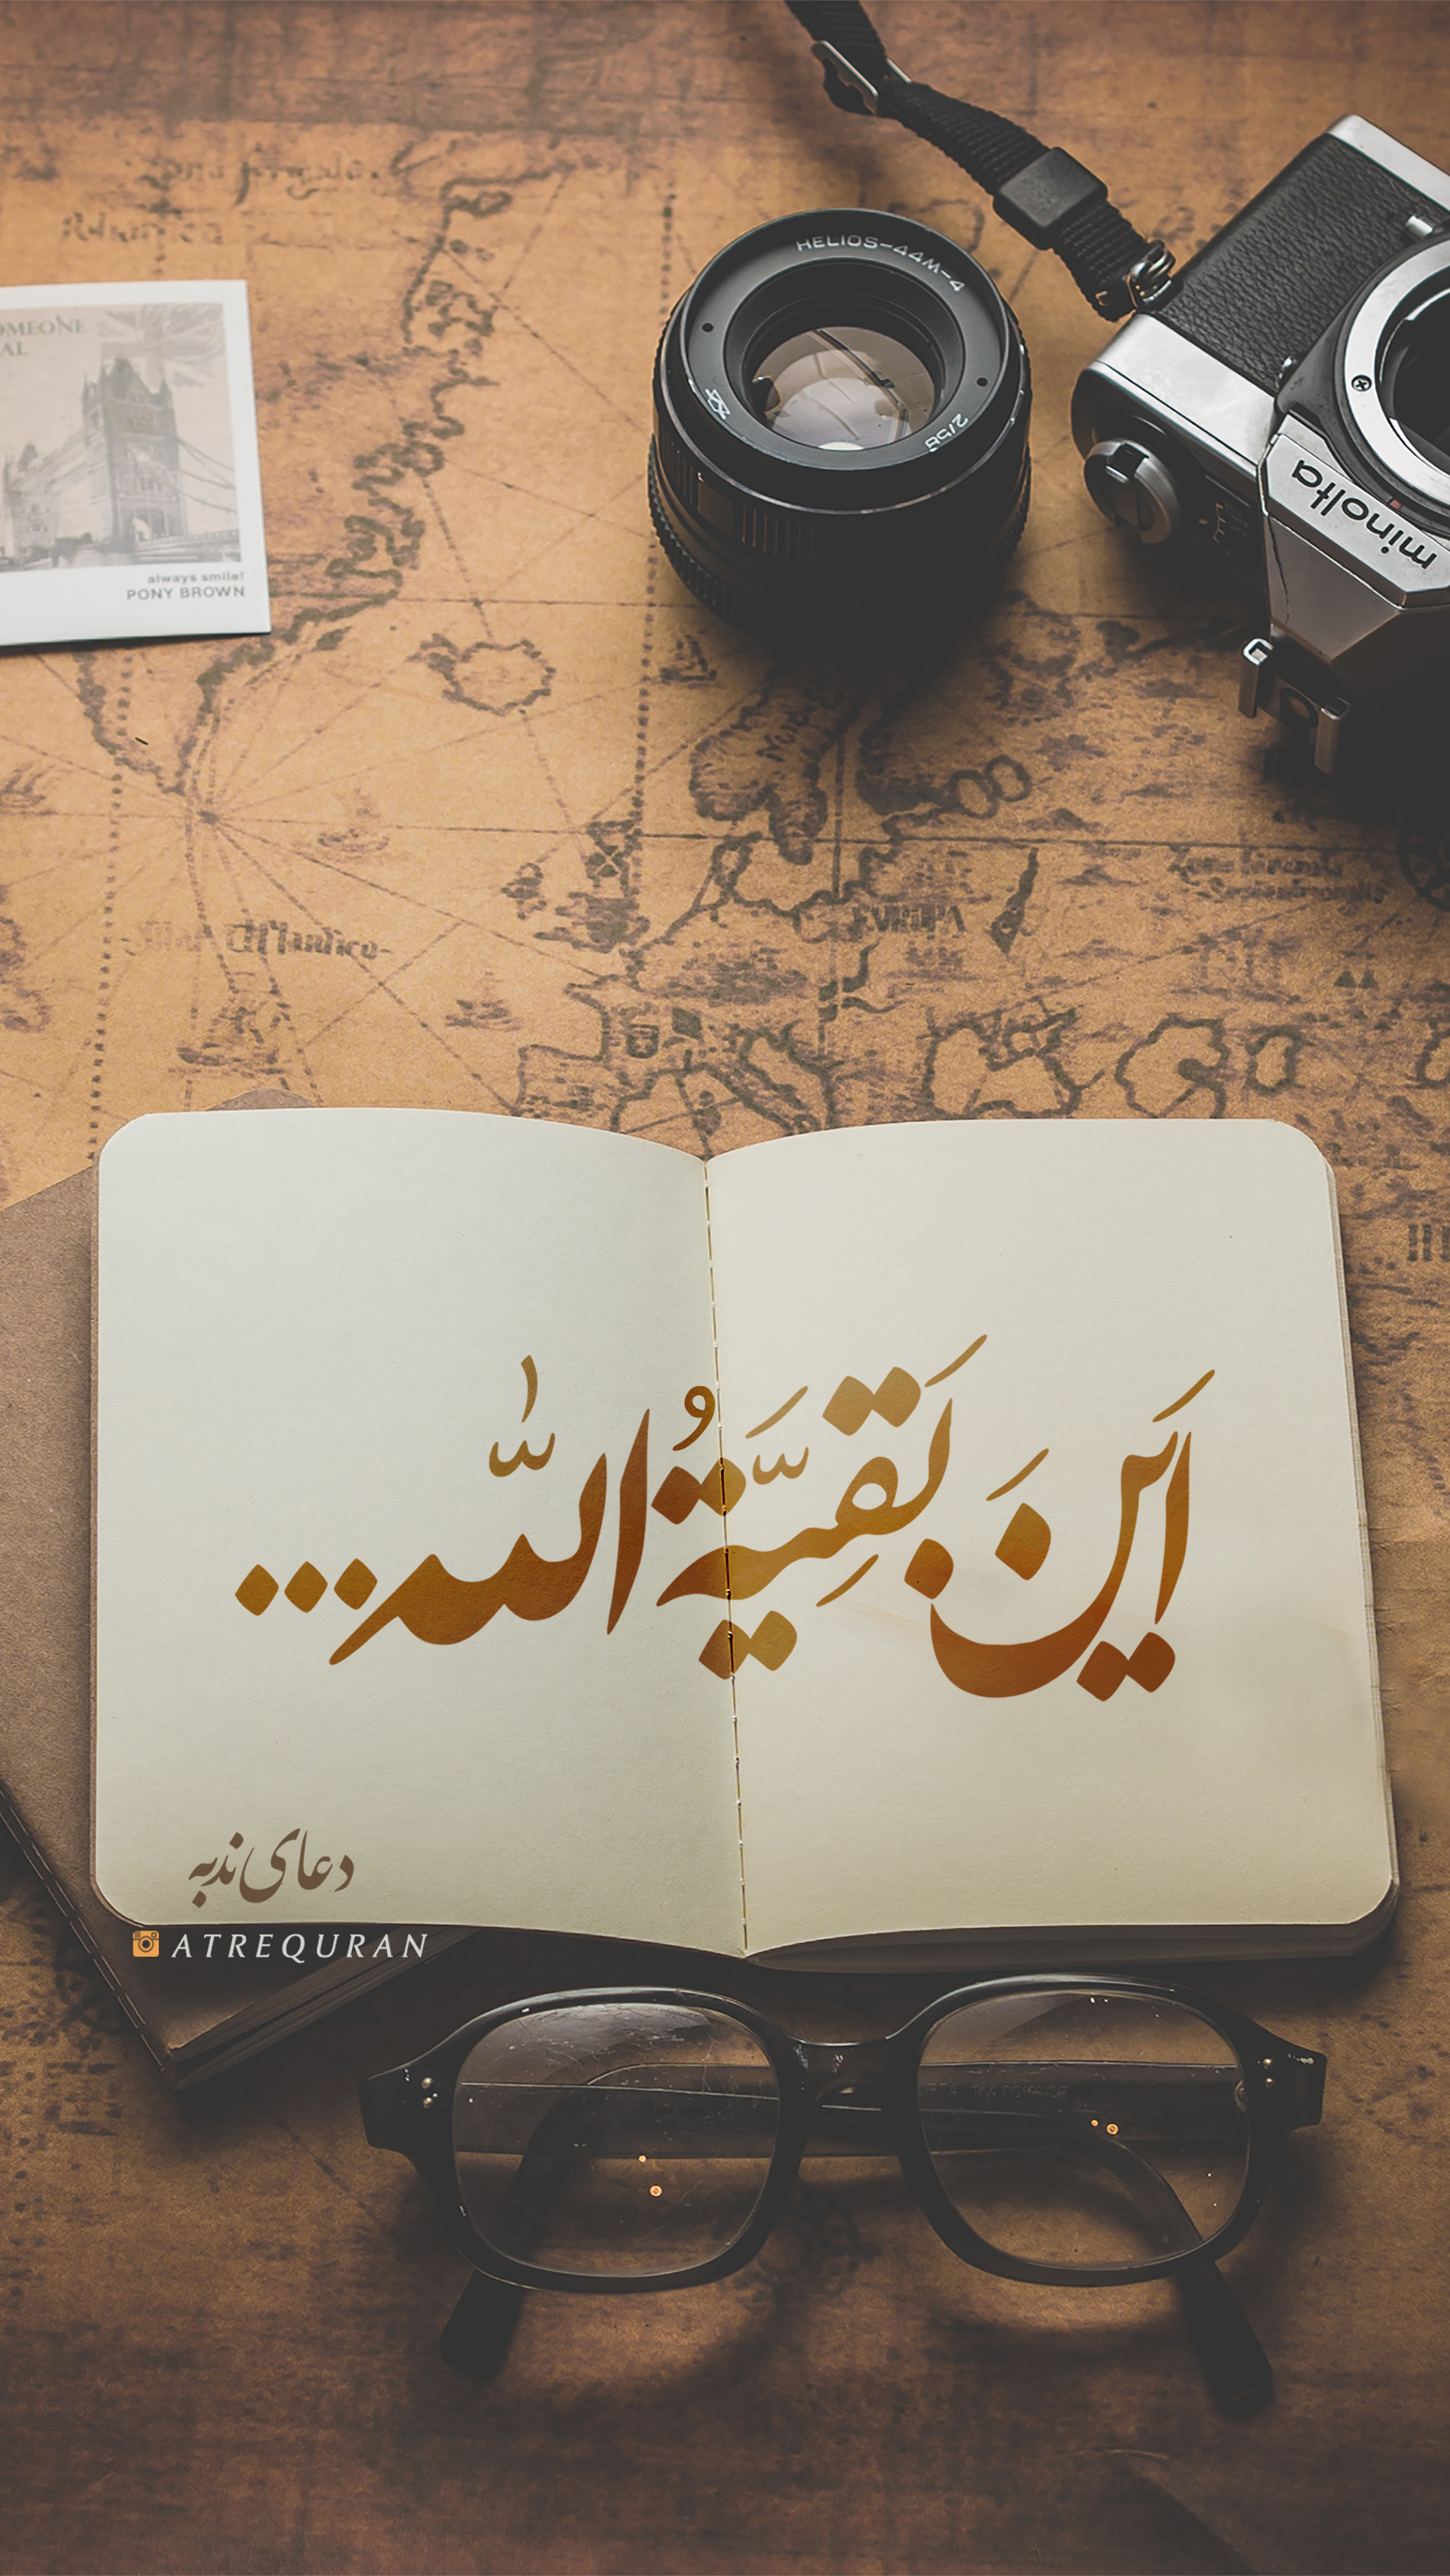 HELIOS-44M-4
2/58
minolta
OMEONE
AL
always smile!
PONY BROWN
EVROPA
أَيْنَ بَقِيَّةُ اللّٰه...
دعای ندبه
ATREQURAN